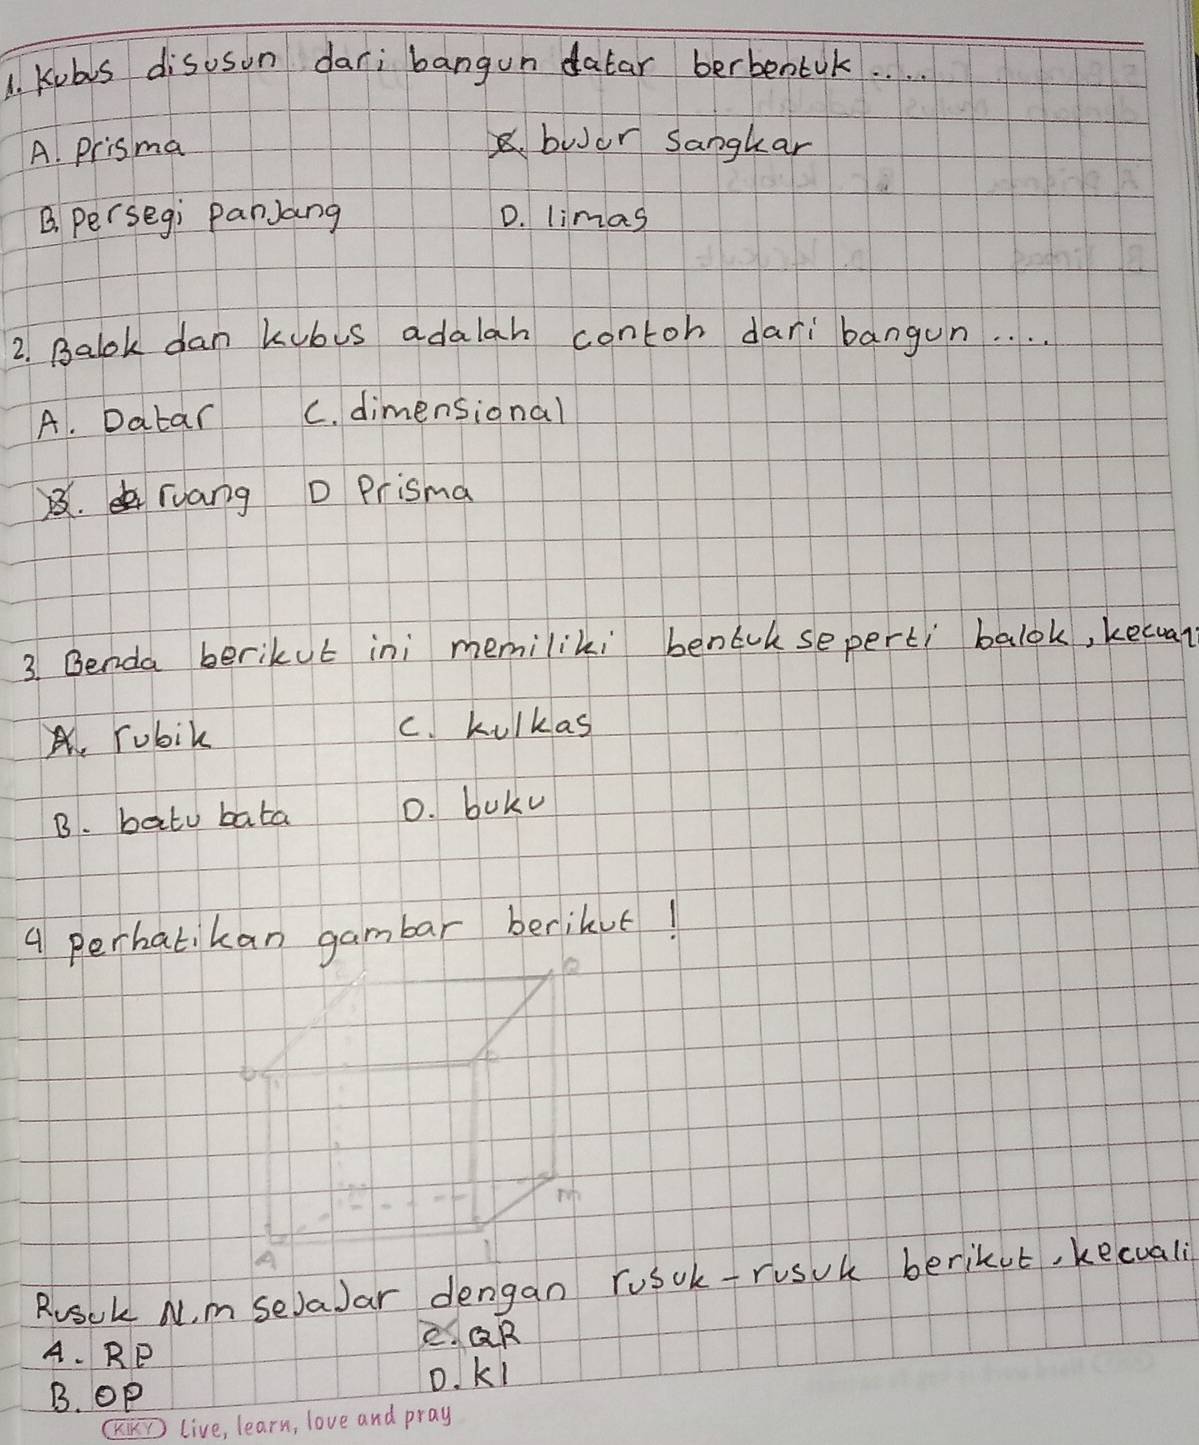 1. Kubus disusun dari bangun datar berbentuk....
A. Prisma C. bujur sangkar
B. Persegi panjang D. limas
2. Balok dan kubus adalah contoh dari bangun....
A. Datar C. dimensional
B. ruang D Prisma
3. Benda berikut ini memiliki bentuk seperti balok, kecuali
A. rubik C. kulkas
B. batu bata D. buku
4 perhatikan gambar berikut!
M
A
Rusuk N.m sejajar dengan rusuk-rusuk berikut, kecuali
A. RP C. QR
B. OP D. Kl
KIKY Live, learn, love and pray